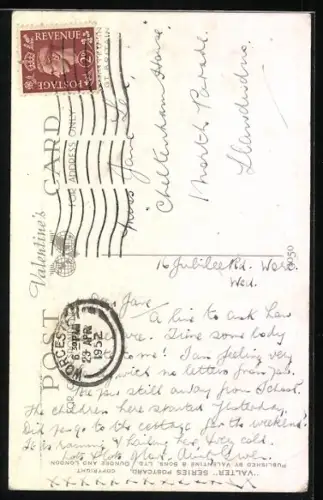 REVENUE
POSTAGE
Valentine's
POST CARD
FOR ADDRESS ONLY
Miss Jane
Cheltenham House
North Parade
Llandudno.
WORCESTER
6 PM
23 APR
1952
16 Jubilee Rd. Worc.
Wed.
Dear Jane
A line to ask how
you are. Time some body
come! I am feeling very
with no letters from you.
Are you still away from School.
The children here started yesterday.
Did you go to the cottage for the weekend?
It is raining & hailing here, very cold.
Lots Love from Aunt Gwen.
x x x x x x x x x x
"VALTER" SERIES POSTCARD. COPYRIGHT
PUBLISHED BY VALENTINE & SONS, LTD. DUNDEE AND LONDON